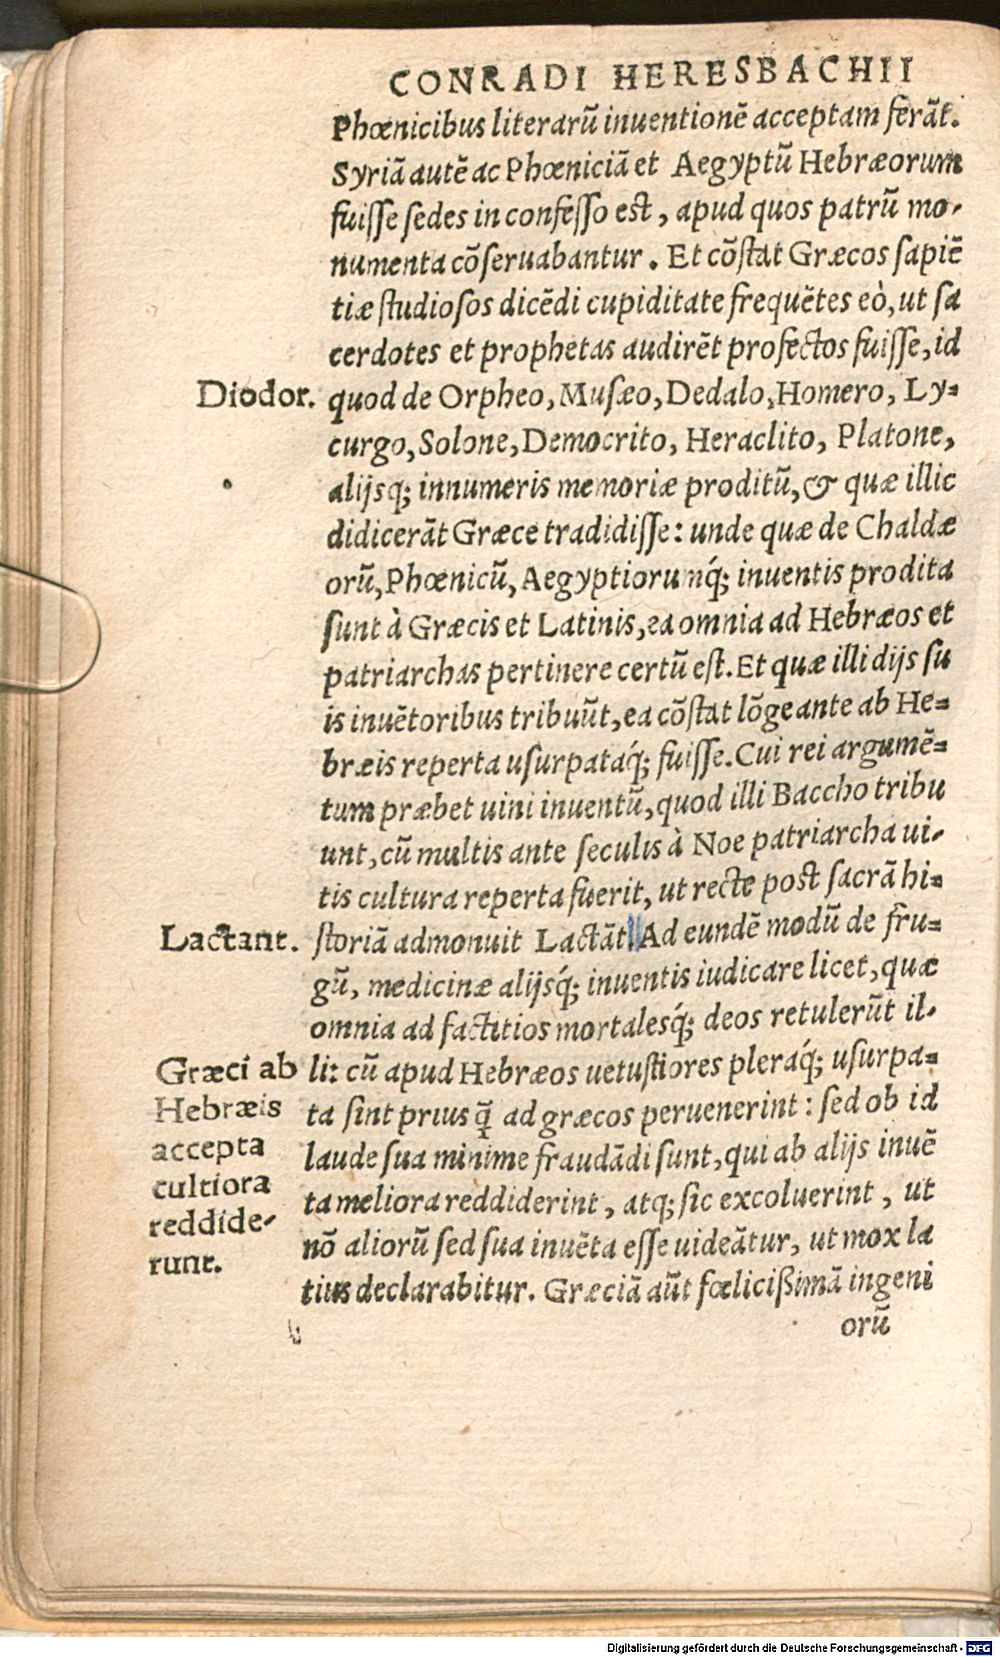 CONRADI HERESBACHII
Phœnicibus literarũ inuentionẽ acceptam ferãt.
Syriã autẽ ac Phœniciã et Aegyptũ Hebræorum
fuiſſe ſedes in confeſſo est, apud quos patrũ mo-
numenta cõſeruabantur. Et cõſtat Græcos ſapiẽ
tiæ ſtudioſos dicẽdi cupiditate frequẽtes eò, ut ſa
cerdotes et prophetas audirẽt profectos fuiſſe, id
Diodor. quod de Orpheo, Muſæo, Dedalo, Homero, Ly-
curgo, Solone, Democrito, Heraclito, Platone,
alijsq; innumeris memoriæ proditũ, & quæ illic
didicerãt Græce tradidiſſe: unde quæ de Chaldæ
orũ, Phœnicũ, Aegyptiorumq́; inuentis prodita
ſunt à Græcis et Latinis, ea omnia ad Hebræos et
patriarchas pertinere certũ eſt. Et quæ illi dijs ſu
is inuẽtoribus tribuũt, ea cõſtat lõge ante ab He-
bræis reperta uſurpataq́; fuiſſe. Cui rei argumẽ-
tum præbet uini inuentũ, quod illi Baccho tribu
unt, cũ multis ante ſeculis à Noe patriarcha ui-
tis cultura reperta fuerit, ut recte post ſacrã hi-
Lactant. ſtoriã admonuit Lactãt. Ad eundẽ modũ de fru-
gũ, medicinæ alijsq́; inuentis iudicare licet, quæ
omnia ad factitios mortalesq́; deos retulerũt il-
Græci ab li: cũ apud Hebræos uetuſtiores pleraq́; uſurpa-
Hebræis ta ſint prius q̃ ad græcos peruenerint: ſed ob id
accepta laude ſua minime fraudãdi ſunt, qui ab alijs inuẽ
cultiora ta meliora reddiderint, atq; ſic excoluerint, ut
reddide- nõ aliorũ ſed ſua inuẽta eſſe uideãtur, ut mox la
runt. tius declarabitur. Græciã aũt fœlicißimã ingeni
orũ
Digitalisierung gefördert durch die Deutsche Forschungsgemeinschaft - DFG